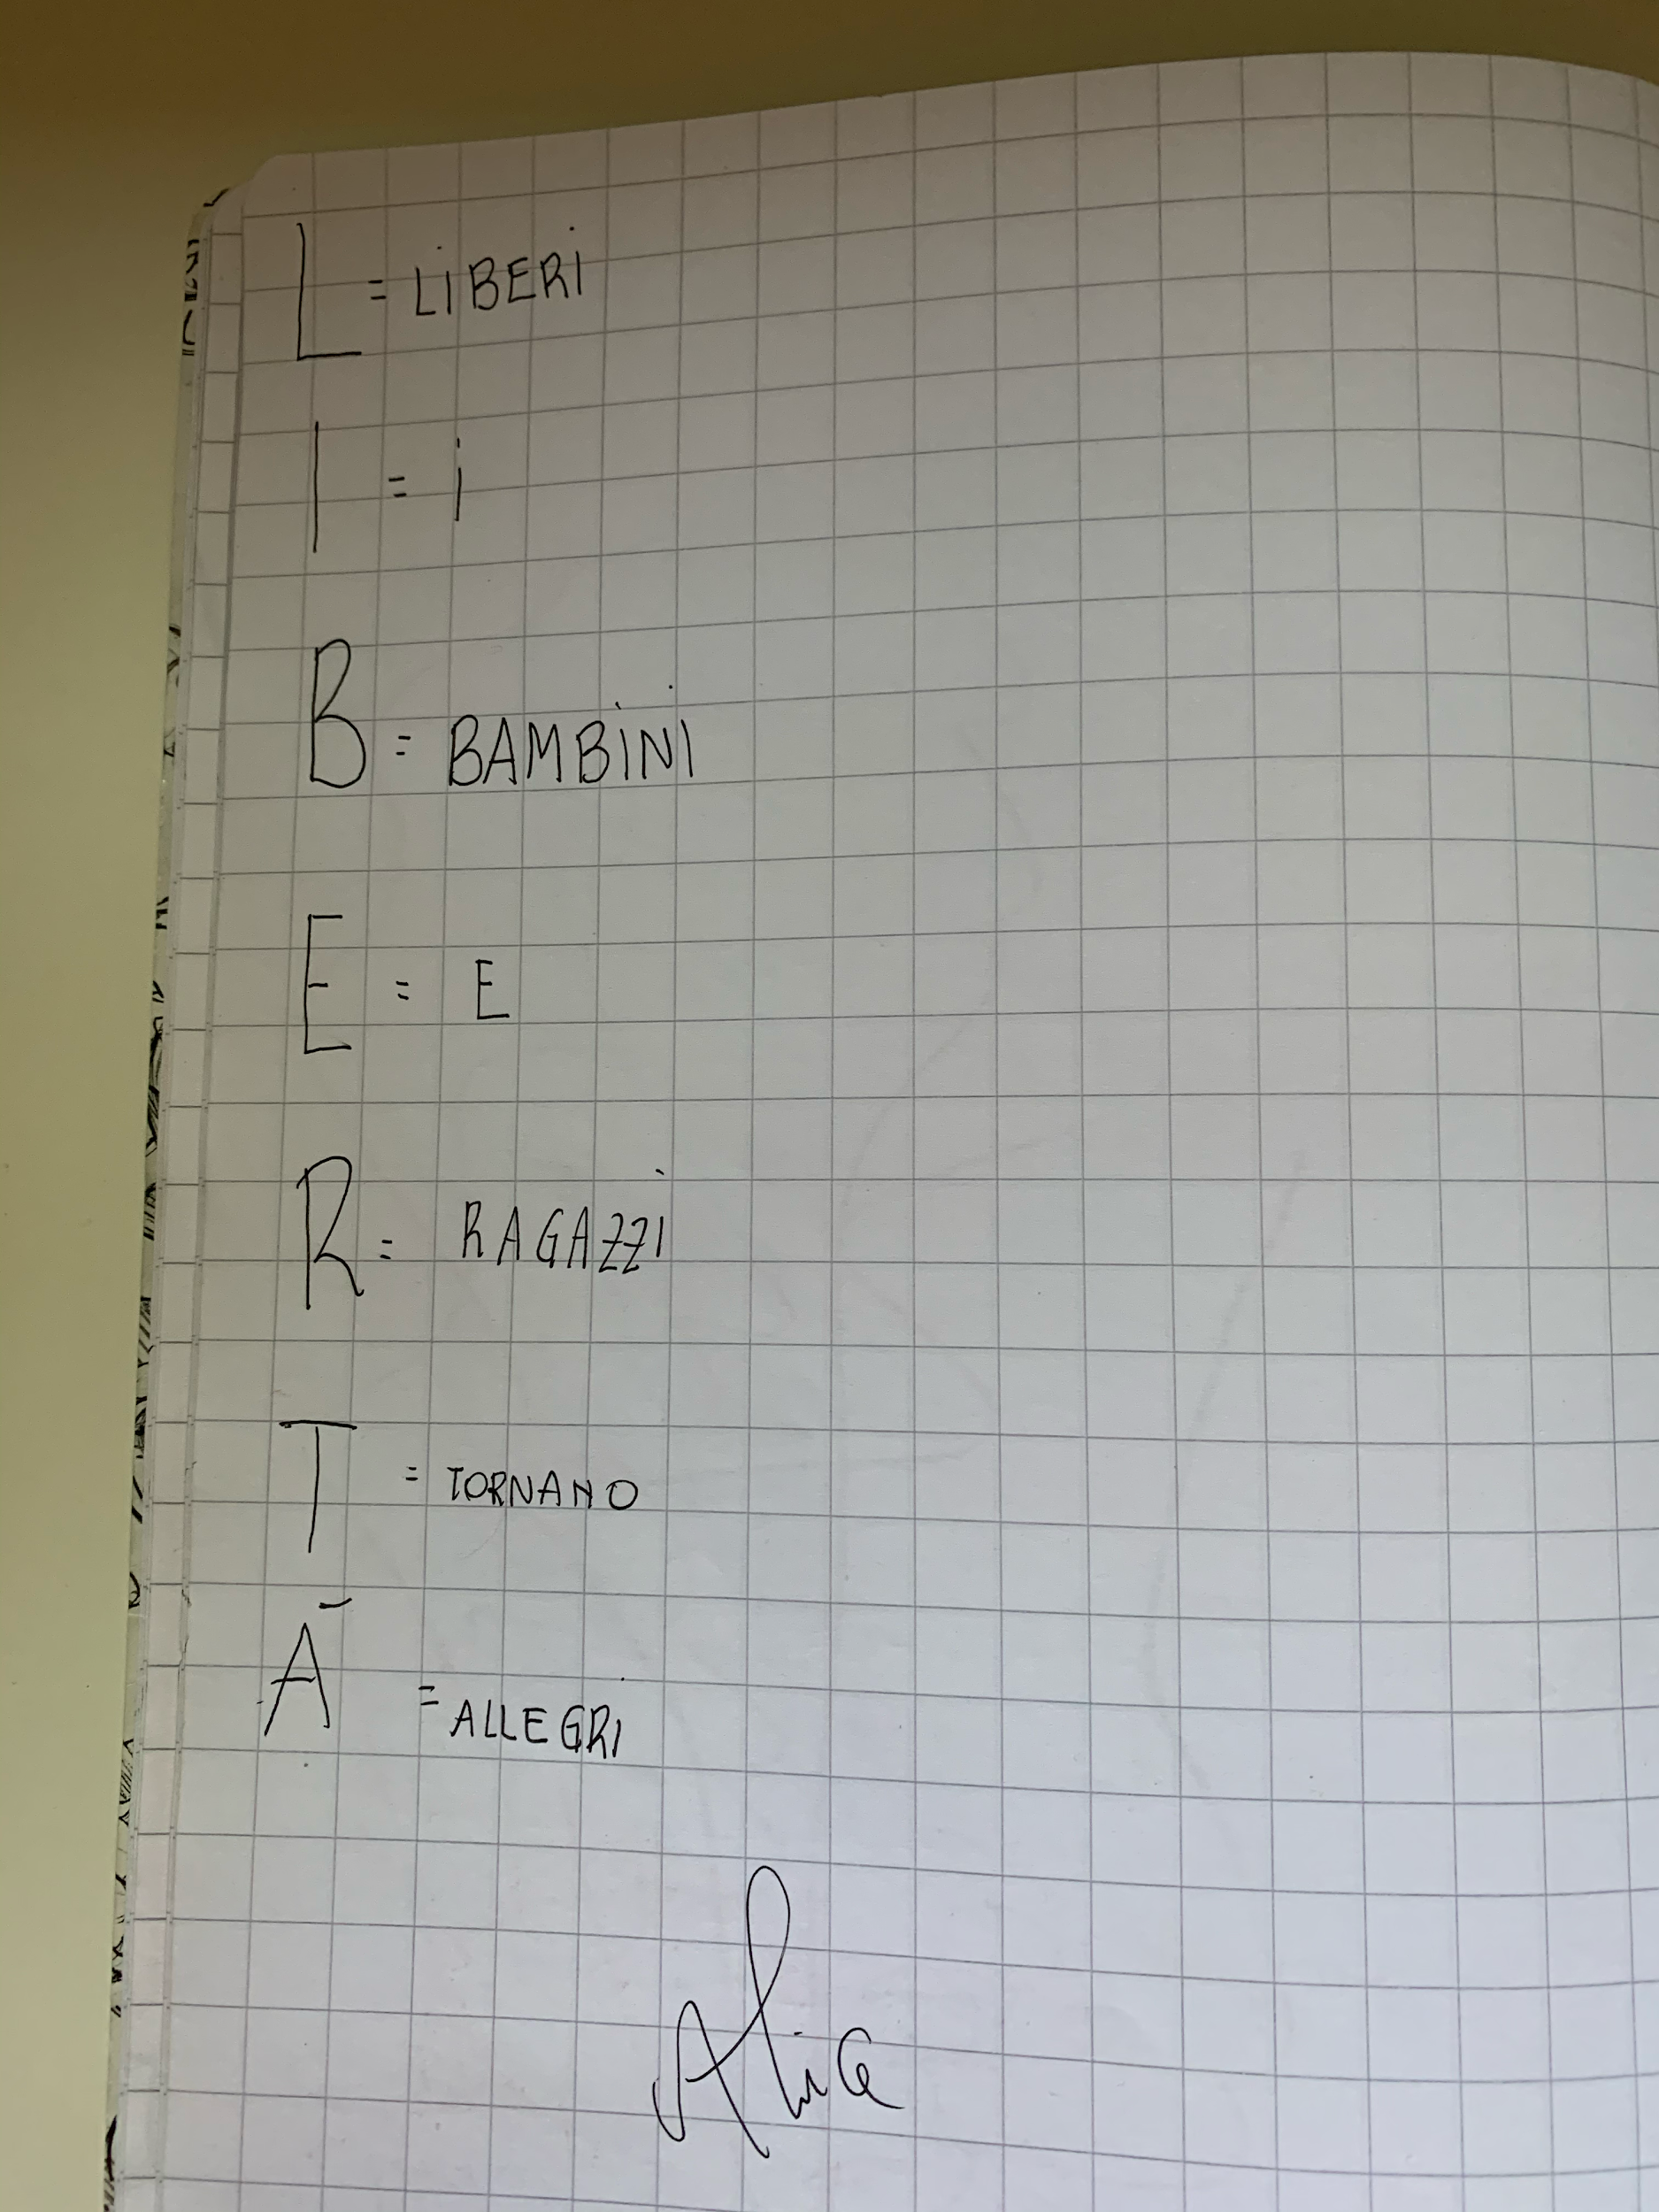 L = LIBERI
I = i
B = BAMBINI
E = E
R = RAGAZZI
T = TORNANO
À = ALLEGRI
Alice